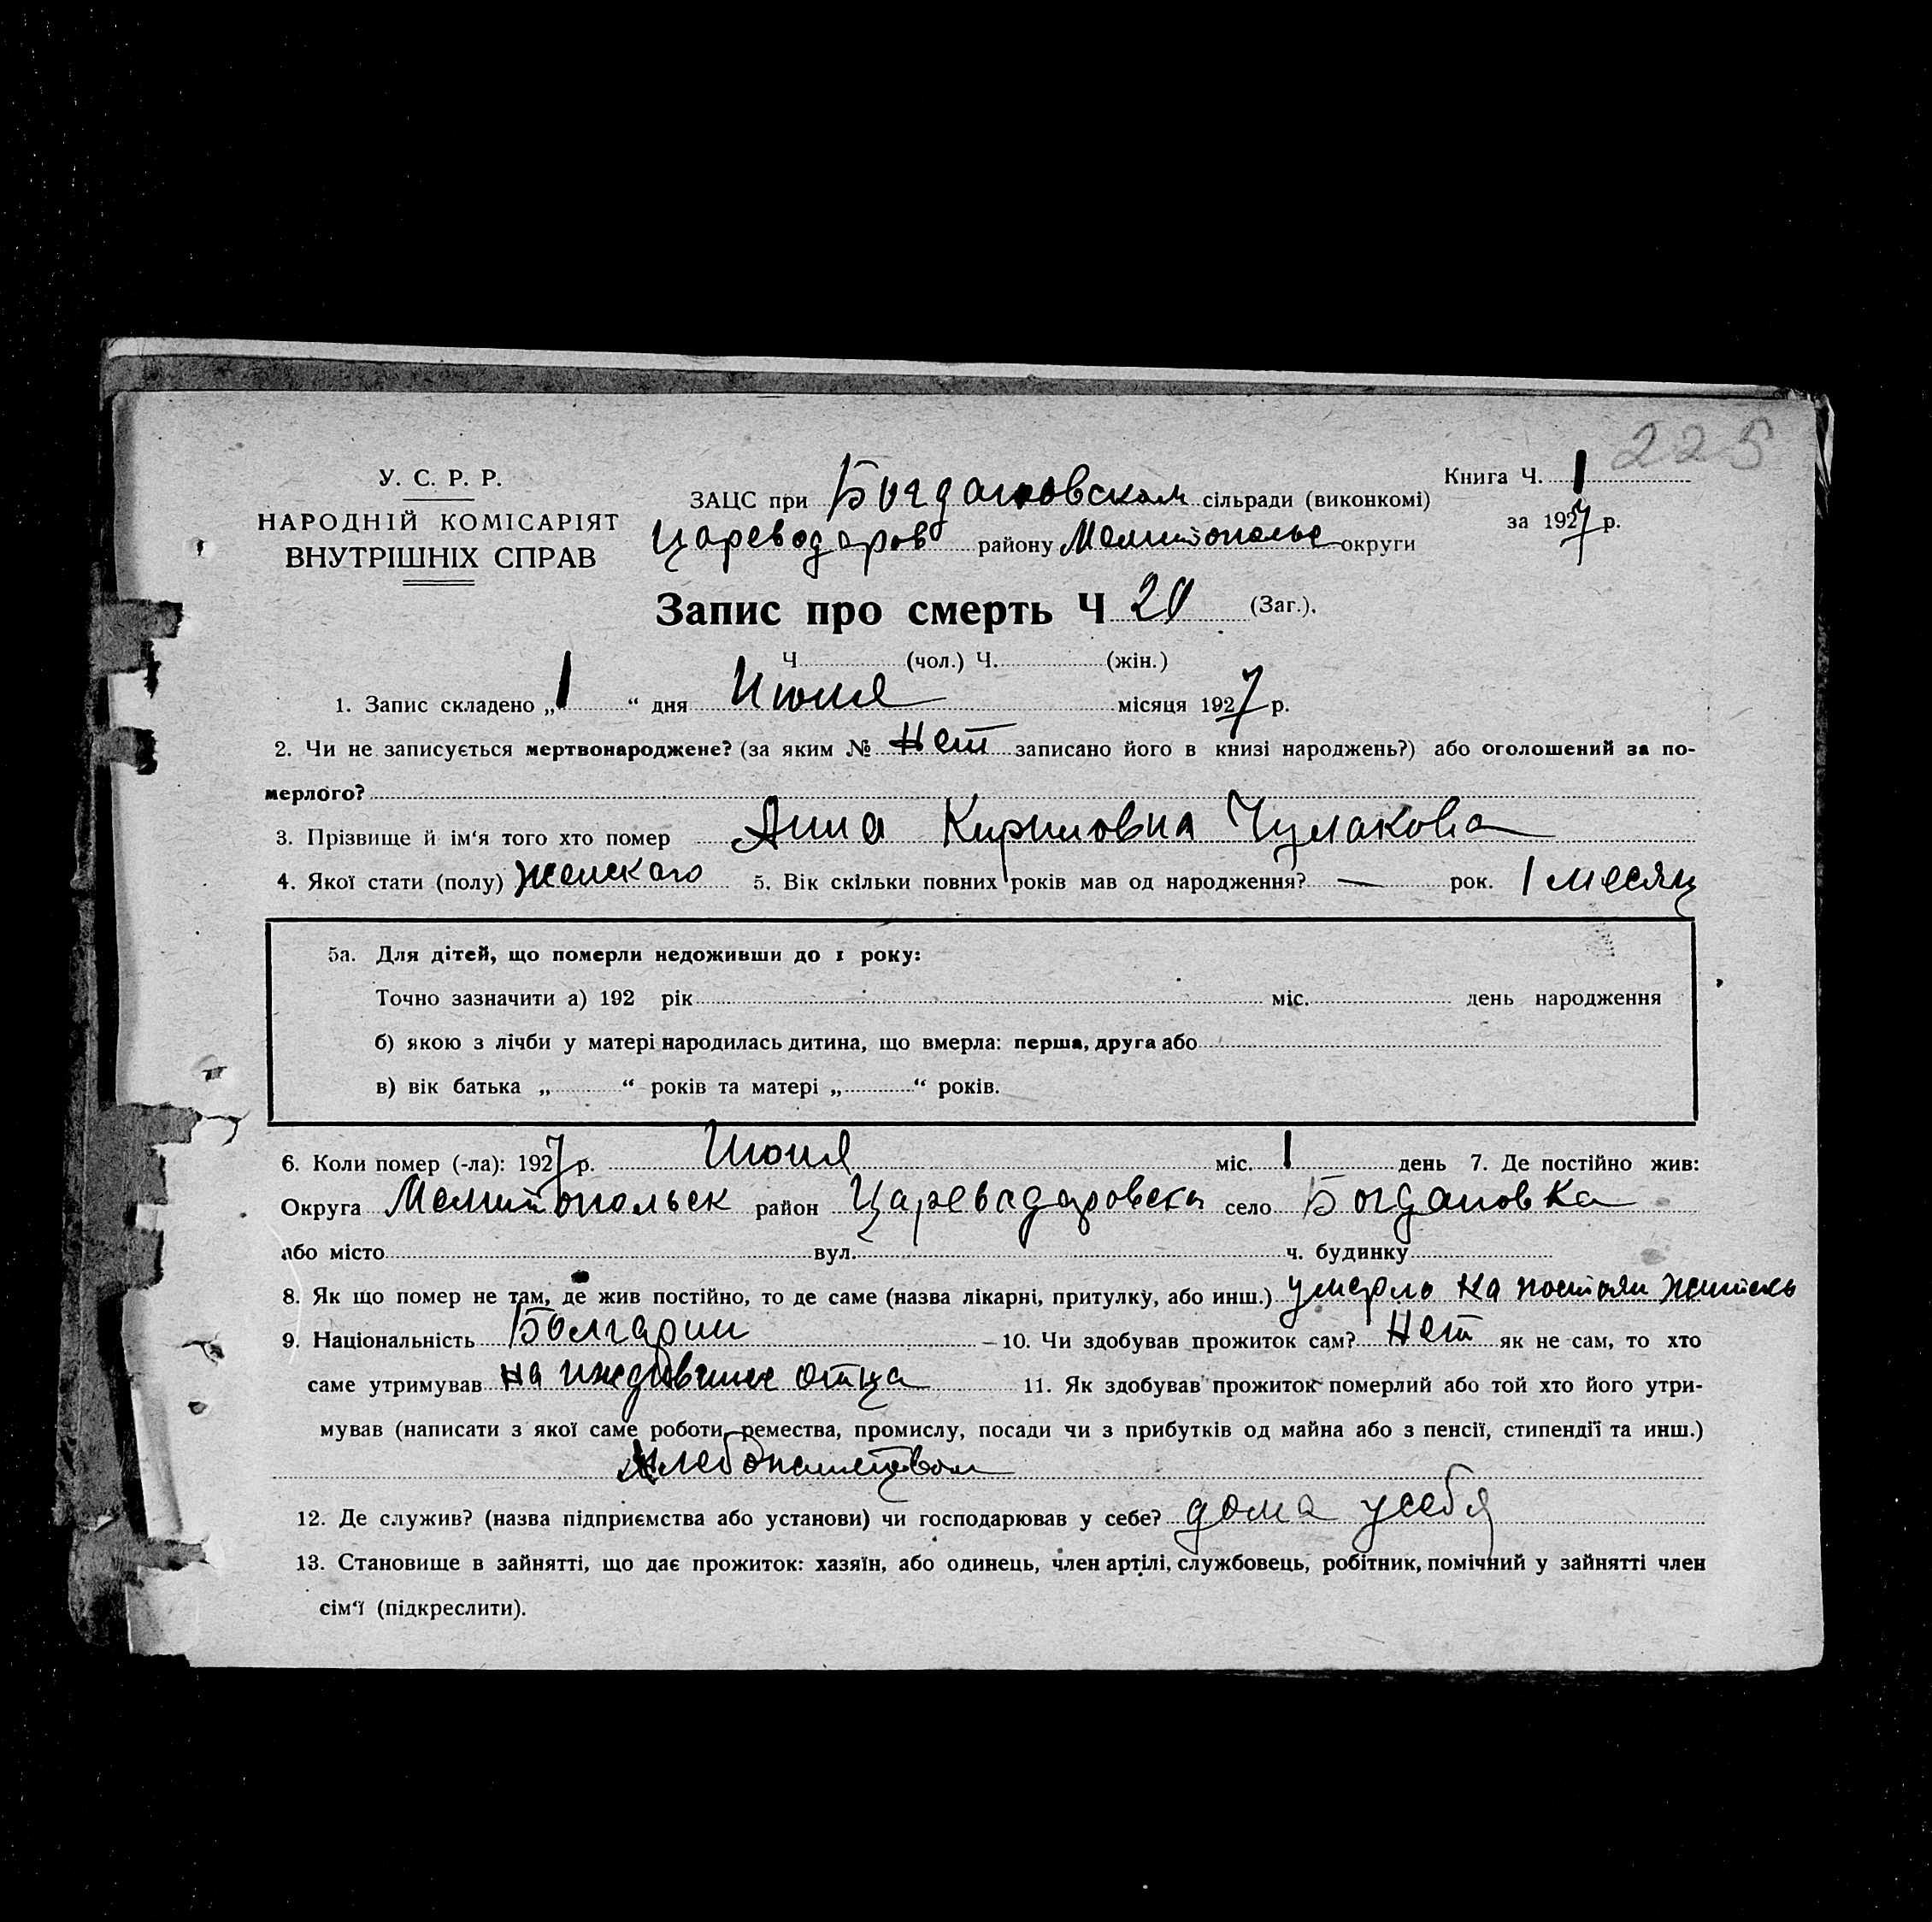 225
У. С. Р. Р.
НАРОДНІЙ КОМІСАРІЯТ
ВНУТРІШНІХ СПРАВ
ЗАЦС при Богдановском сільради (виконкомі)
Цареводаров району Мелитополье округи
Книга Ч. 1
за 1927 р.
Запис про смерть Ч 20 (Заг.).
Ч. (чол.) Ч. (жін.)
1. Запис складено „1“ дня Июня місяця 1927 р.
2. Чи не записується мертвонароджене? (за яким № Нет записано його в книзі народжень?) або оголошений за по-
мерлого?
3. Прізвище й ім‘я того хто помер Анна Кириловна Чумакова
4. Якої стати (полу) Женского 5. Вік скільки повних років мав од народження? — рок. 1 месяц
5а. Для дітей, що померли недоживши до 1 року:
Точно зазначити а) 192 рік міс. день народження
б) якою з лічби у матері народилась дитина, що вмерла: перша, друга або
в) вік батька „ “ років та матері „ “ років.
6. Коли помер (-ла): 1927 р. Июня міс. 1 день 7. Де постійно жив:
Округа Мелитопольск район Цареводаровск село Богдановка
або місто вул. ч. будинку
8. Як що помер не там, де жив постійно, то де саме (назва лікарні, притулку, або инш.) умерла на постоян жительс
9. Національність Болгарии — 10. Чи здобував прожиток сам? Нет як не сам, то хто
саме утримував на иждивение отца 11. Як здобував прожиток померлий або той хто його утри-
мував (написати з якої саме роботи, ремества, промислу, посади чи з прибутків од майна або з пенсії, стипендії та инш.)
хлебопашеством
12. Де служив? (назва підприємства або установи) чи господарював у себе? дома у себя
13. Становище в зайнятті, що дає прожиток: хазяїн, або одинець, член артілі, службовець, робітник, помічний у зайнятті член
сім‘ї (підкреслити).